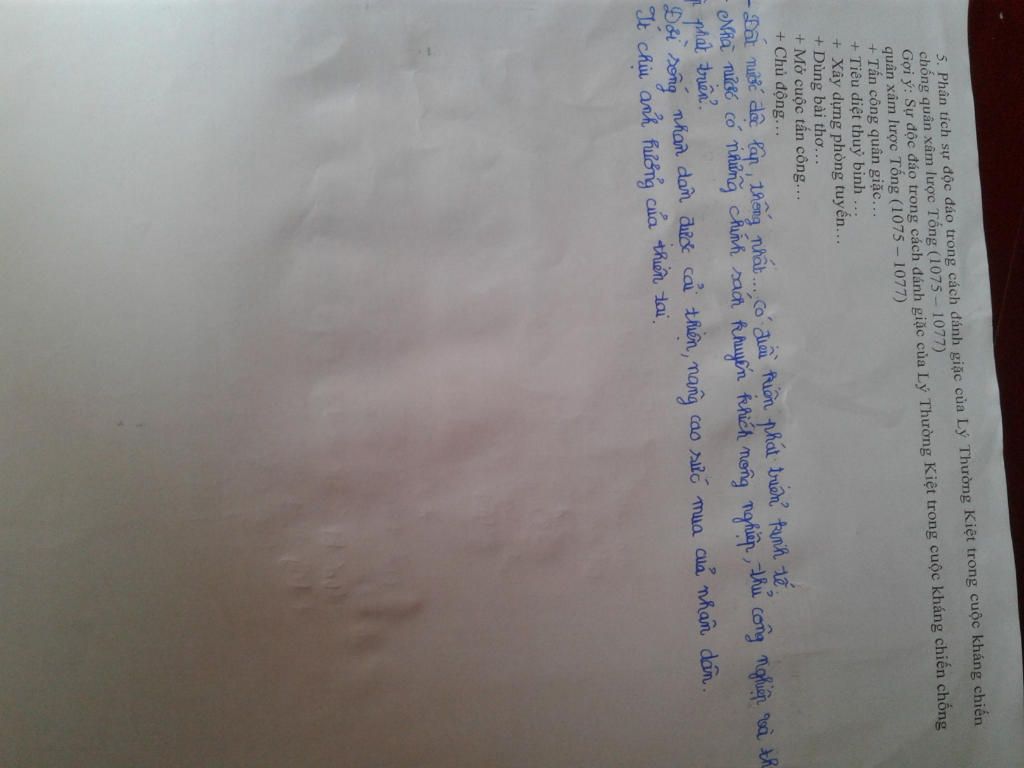 5. Phân tích sự độc đáo trong cách đánh giặc của Lý Thường Kiệt trong cuộc kháng chiến
chống quân xâm lược Tống (1075 – 1077)
Gợi ý: Sự độc đáo trong cách đánh giặc của Lý Thường Kiệt trong cuộc kháng chiến chống
quân xâm lược Tống (1075 – 1077)
+ Tấn công quân giặc…
+ Tiêu diệt thuỷ binh …
+ Xây dựng phòng tuyến…
+ Dùng bài thơ…
+ Mở cuộc tấn công…
+ Chủ động…
- Đất nước độc lập, thống nhất..., có điều kiện phát triển kinh tế.
Nhà nước có những chính sách khuyến khích nông nghiệp, thủ công nghiệp và th
phát triển.
Đời sống nhân dân được cải thiện, nâng cao sức mua của nhân dân.
Ít chịu ảnh hưởng của thiên tai.